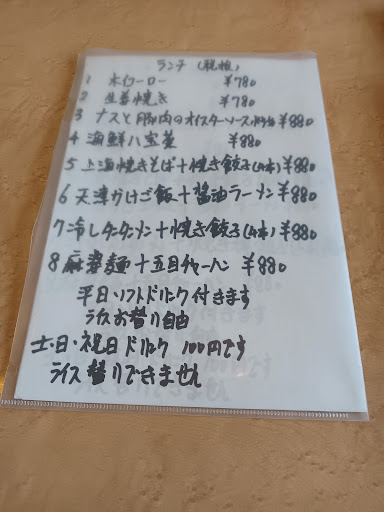 ランチ (税抜)
1 ホイコーロー ¥780
2 生姜焼き ¥780
3 ナスと豚肉のオイスターソース炒め ¥880
4 海鮮八宝菜 ¥880
5 上海焼きそば+焼き餃子(4本) ¥880
6 天津かけご飯+醤油ラーメン ¥880
7 冷しタンタンメン+焼き餃子(4本) ¥880
8 麻婆麺+五目チャーハン ¥880
平日・ソフトドリンク付きます
ライスお替り自由
土・日・祝日ドリンク100円です
ライス替りできません